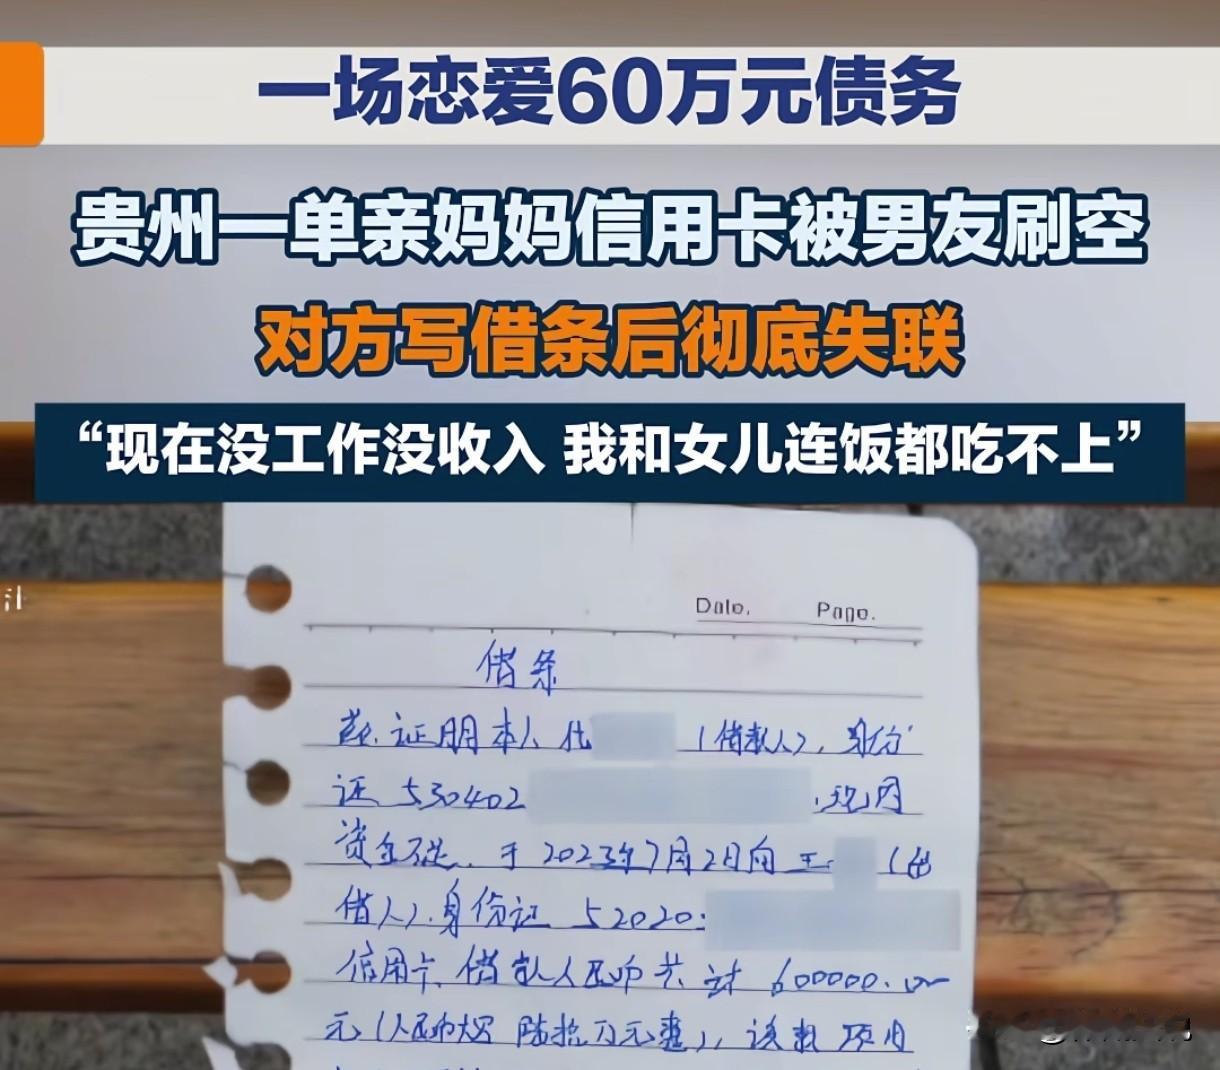 一场恋爱60万元债务
贵州一单亲妈妈信用卡被男友刷空
对方写借条后彻底失联
“现在没工作没收入 我和女儿连饭都吃不上”
Date. Page.
借条
兹证明本人 (借款人),身份
证 530402 现因
资金不足,于2023年7月2日向王 (出
借人),身份证 52020
信用卡借款人民币共计 600000.00
元(人民币大写 陆拾万元整),该款项用